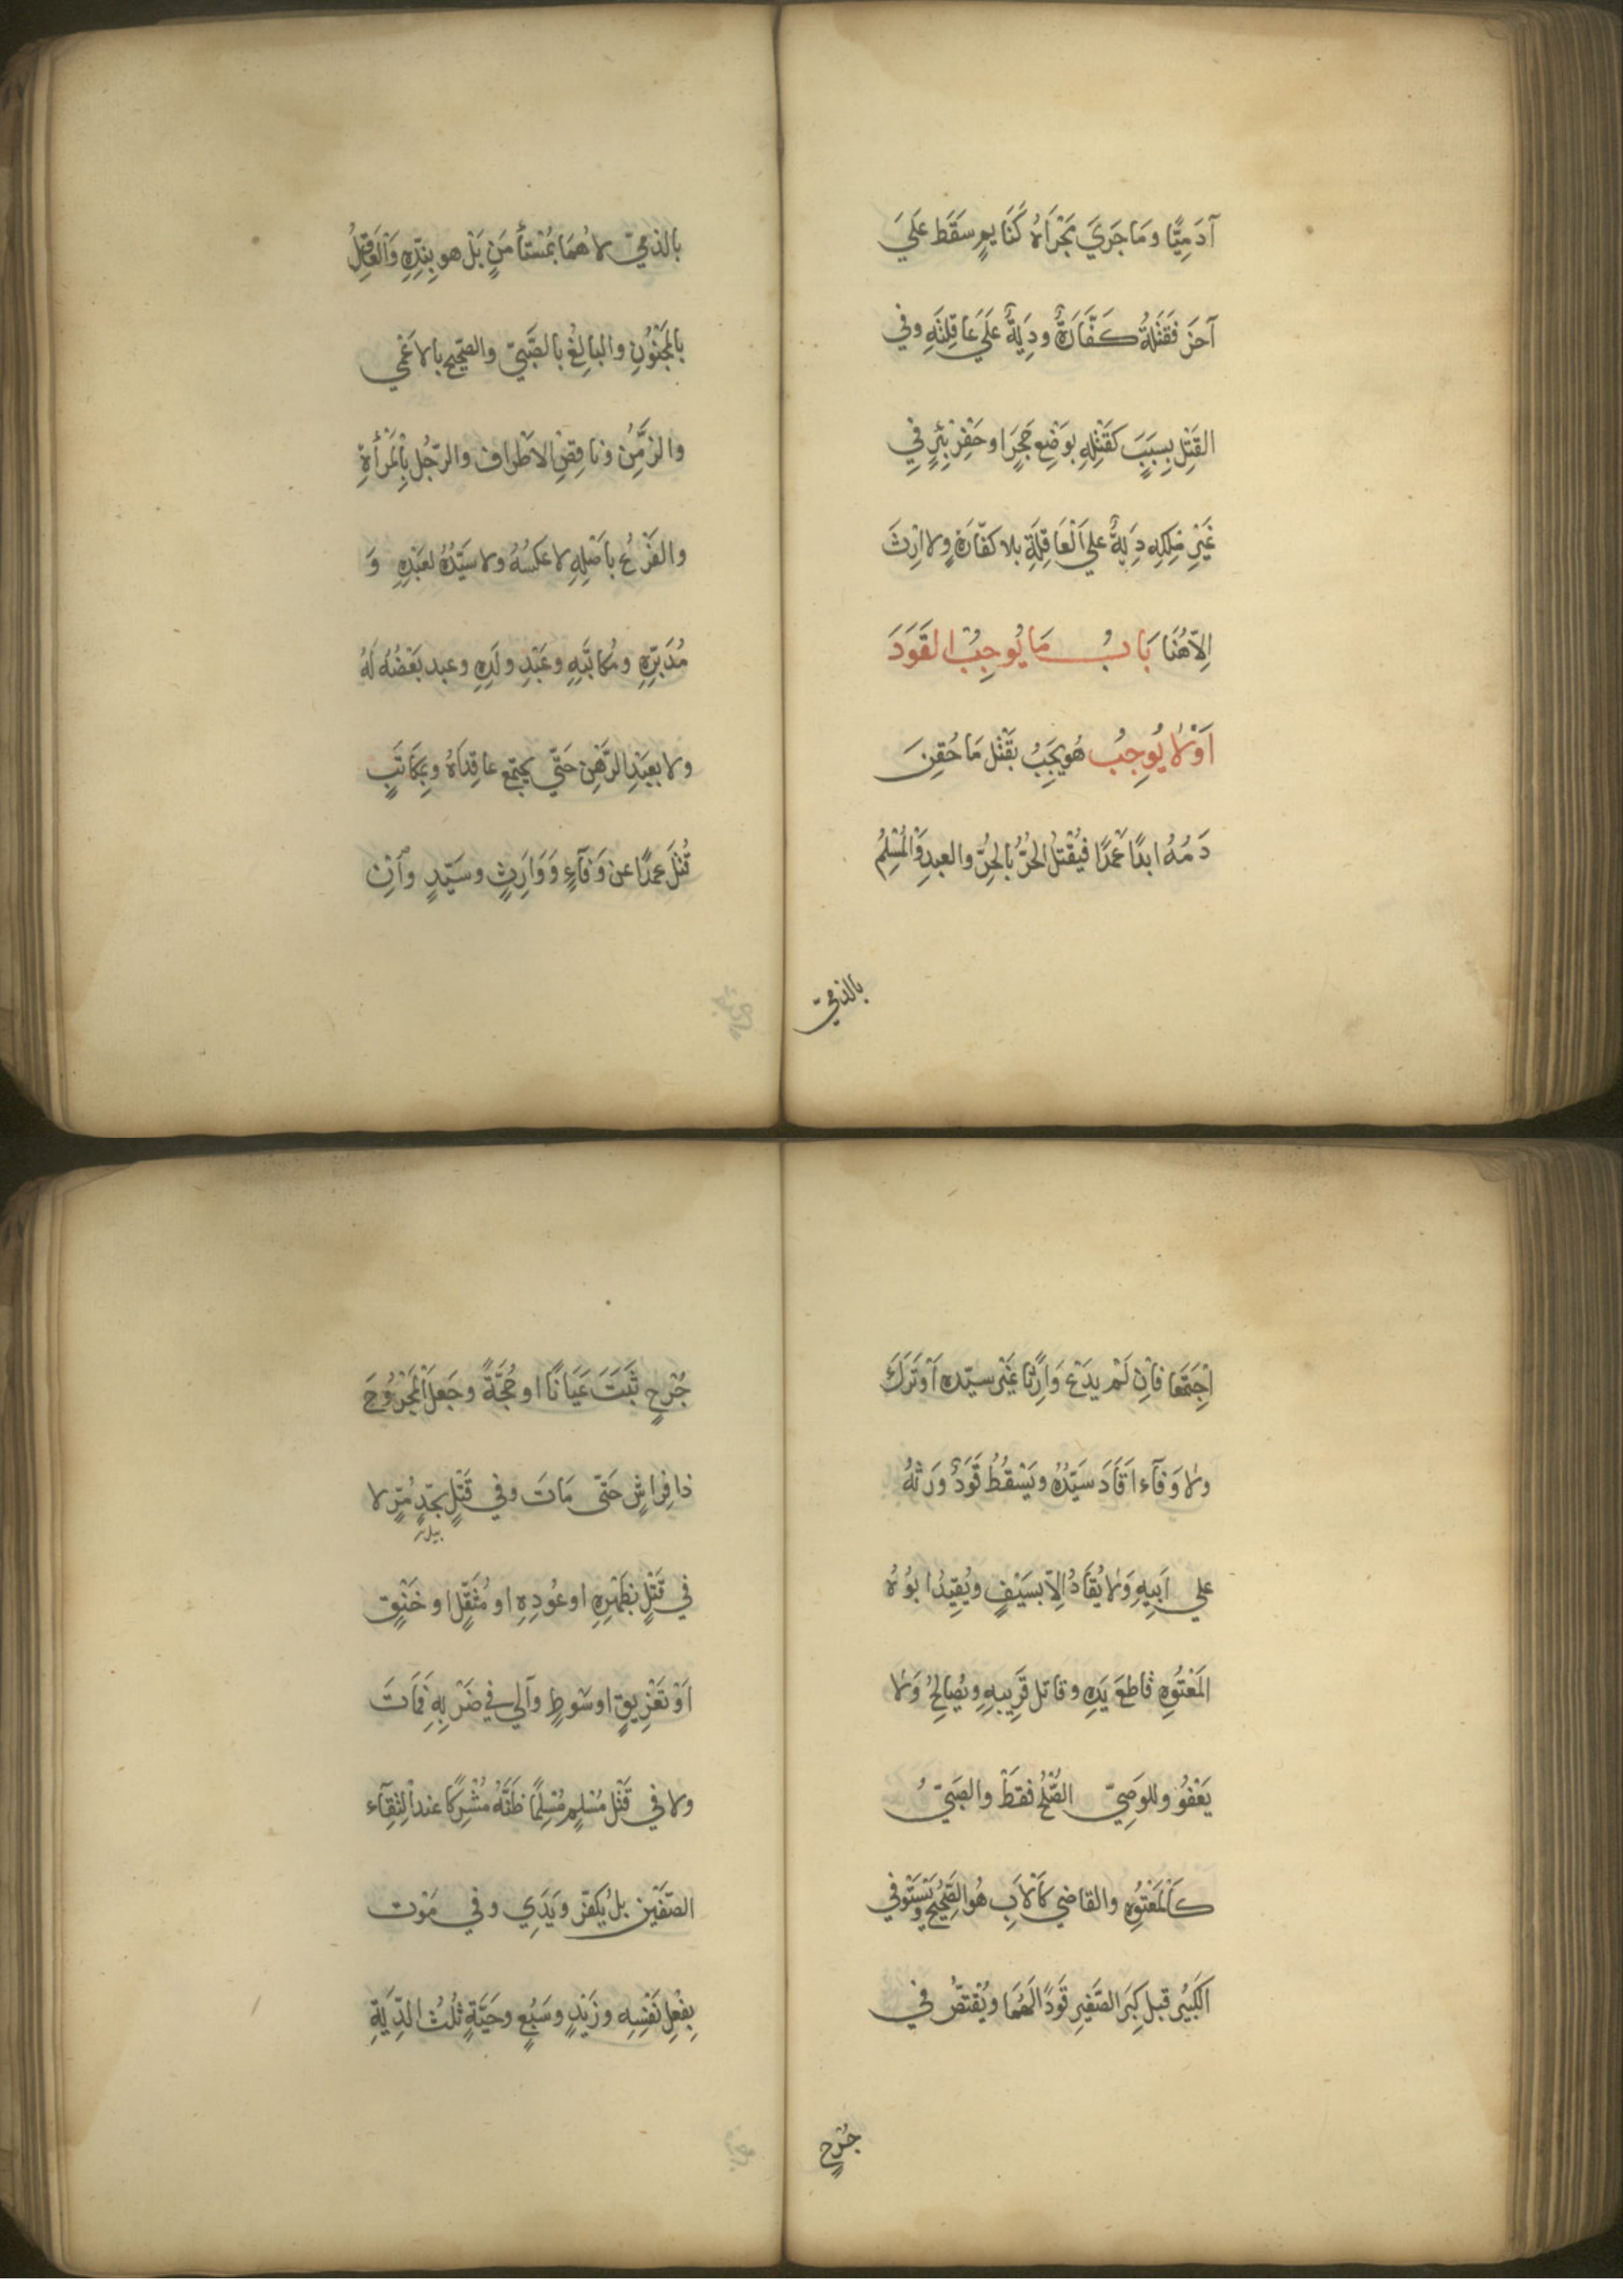 آدَمِيًّا وَمَا جَرَيَ مَجْرَاهُ كَنَايِمٍ سَقَطَ عَلَيَ
آخَرَ فَقَتْلَهُ كَفَّارَةٌ وَدِيَةٌ عَلَيَ عَاقِلَتِهِ وفي
القَتْلِ بِسَبَبٍ كَقَتْلِهِ بِوَضْعِ حَجَرٍ او حَفْرِ بِئْرٍ فِي
غَيْرِ مِلْكِهِ دِيَةٌ علي الْعَاقِلَةِ بلا كفّارَةٍ ولا ارْثَ
اِلَّا هُنَا بَابُ مَا يُوجِبُ القَوَدَ
اَوْ لا يُوجِبُ هُو يَجِبُ بقَتْلِ مَا حُقِنَ
دَمُهُ ابدًا عَمْدًا فيُقْتَلُ الحُرُّ بالحُرِّ والعبدِ وَالْمُسْلِمُ
بالذميّ
بالذميّ لا هُمَا بمُسْتَأْمَنٍ بَلْ هو بِنِدِّهِ وَالْعَاقِلُ
بالمَجْنُونِ والبالِغُ بالصَّبِيّ والصحِيح بالاعْمي
والزَّمِنِ ونَاقِصِ الاَطْرَاف والرّجُل بالْمَرْأَةِ
والفَرْعُ بِاَصْلِهِ لا عَكْسُهُ ولا سَيِّدُهُ لعَبْدِهِ وَ
مُدَبَّرِهِ ومُكَاتَبِهِ وعَبْدِ ولَدِهِ وعبد بَعْضُهُ لَهُ
ولا بعَبْدِ الرَّهْنِ حَتّي يجتمع عاقِدَاهُ وبمُكَاتَبٍ
قُتِلَ عَمْدًا عن وَفَآءٍ وَوَارِثٍ وسَيِّدٍ وَاِنْ
اجْتَمَعا فاِنْ لَمْ يدَعْ وَارِثًا غَيْرَ سيّده اَوْ تَرَكَ
ولا وَفآء اَقَادَ سَيِّدُهُ ويَسْقُطُ قَوَدٌ وَرثَهُ
علي اَبِيهِ وَلا يُقَادُ اِلّا بسَيْفٍ ويُقِيدُ ابُوهُ
المَعْتُوهِ قاطعَ يَدِهِ وقاتل قَرِيبِهِ ويُصَالِحُ وَلا
يَعْفُو وللوَصِيّ الصُّلْحُ فقَطْ والصَبيّ
كالْمَعْتُوهِ والقاضي كالاَبِ هُو الصَّحِيحُ ويَسْتَوفي
الكَبيرُ قبل كِبَرِ الصَّغيرِ قَوَدًا لَهُمَا ويُقْتصُّ في
جُرْحٍ
جُرْحٍ ثَبَتَ عَيَانًا او حُجَّةً وجَعلَ المَجْرُوحَ
ذا فِرَاشٍ حَتَّى مَاتَ وفي قَتْلٍ بحَدِّ مَرٍّ لا
بيلدر
في قَتْلٍ بظَهْرِهِ او عُودِهِ او مُثَقَّلٍ او خَنْقٍ
اَوْ تَغْرِيقٍ او سَوطٍ وآلي في ضَرْبِهِ فَمَاتَ
ولا في قَتْل مُسْلِمٍ مُسْلِمًا ظَنَّهُ مُشْرِكًا عند الْتِقَآء
الصّفَّيْنِ بلْ يُكفِّر ويَدِي وفي مَوْت
بِفِعْلِ نَفْسِهِ وزَيْدٍ وسَبُعٍ وحَيَّةٍ ثُلُثُ الدِّيَةِ